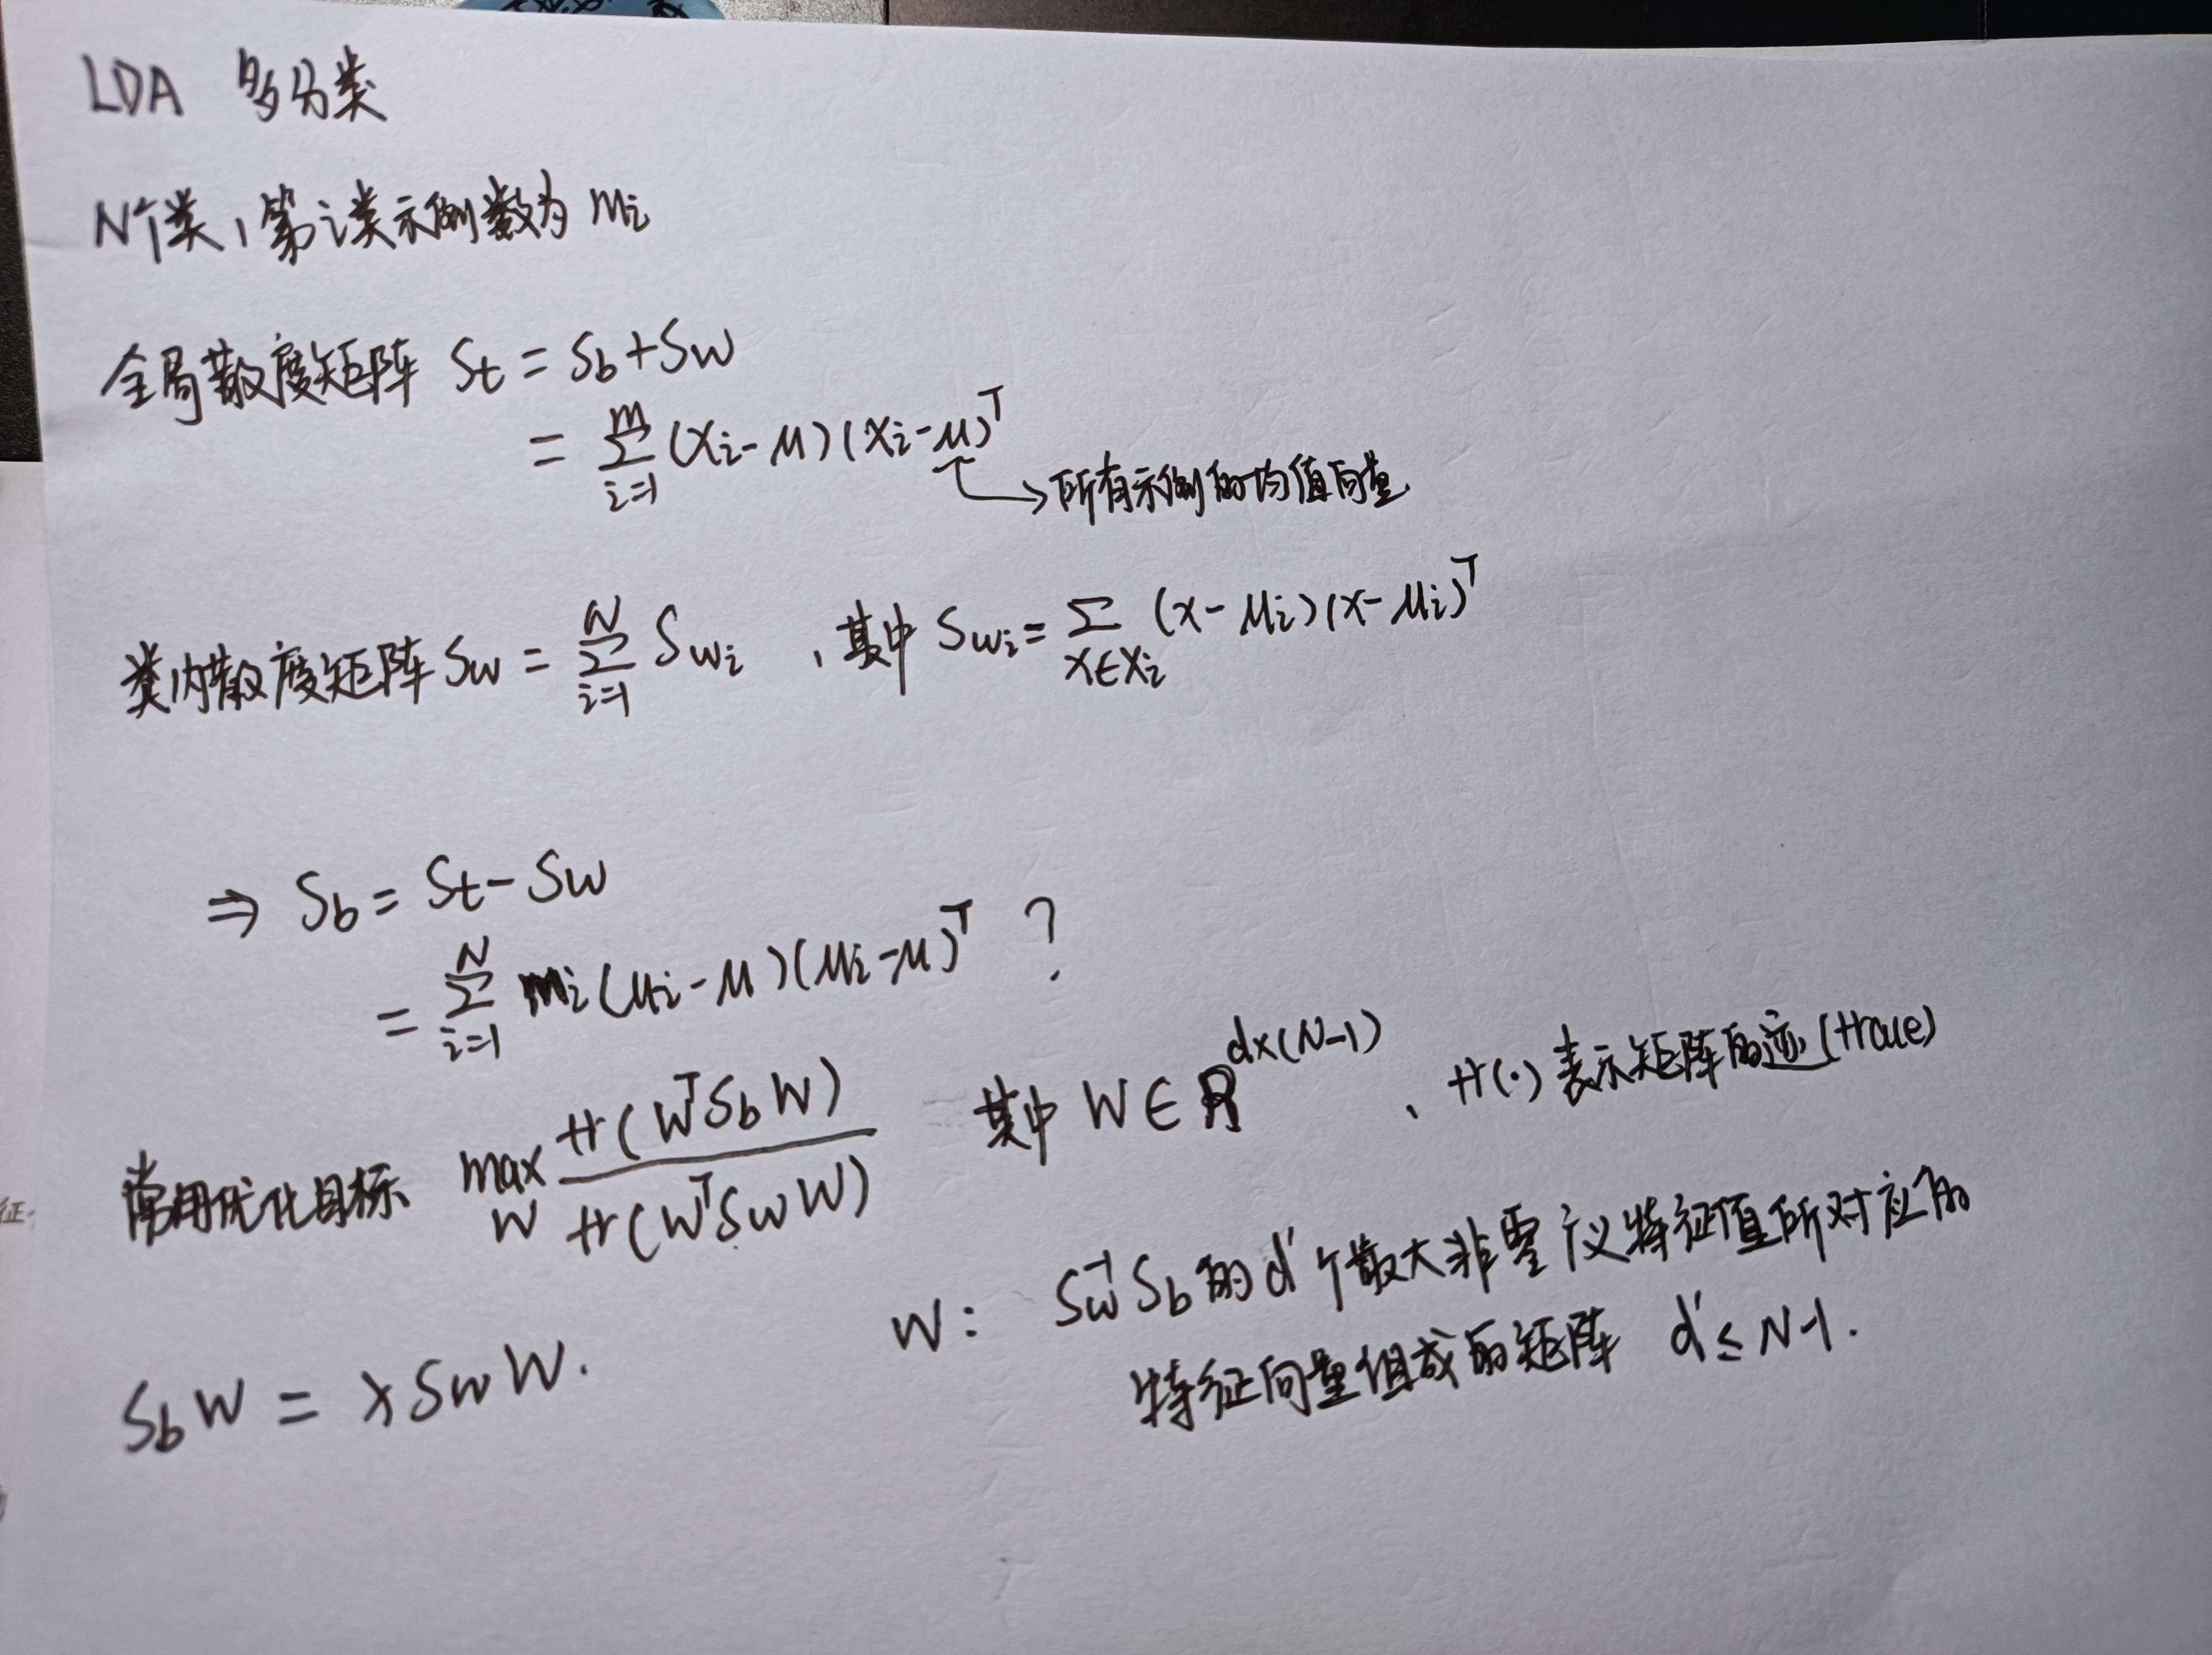 LDA 多分类
N个类，第i类示例数为 mi
全局散度矩阵 St = Sb + Sw
= Σ_{i=1}^{m} (xi - μ)(xi - μ)^T
→ 所有示例的均值向量
类内散度矩阵 Sw = Σ_{i=1}^{N} Swi ，其中 Swi = Σ_{x∈Xi} (x - μi)(x - μi)^T
⇒ Sb = St - Sw
= Σ_{i=1}^{N} mi (μi - μ)(μi - μ)^T ？
常用优化目标 max_W tr(W^T Sb W) / tr(W^T Sw W) 其中 W ∈ R^{d×(N-1)} ，tr(·) 表示矩阵的迹 (trace)
W： Sw^{-1} Sb 的 d' 个最大非零广义特征值所对应的
特征向量组成的矩阵 d' ≤ N-1.
Sb W = λ Sw W.
征